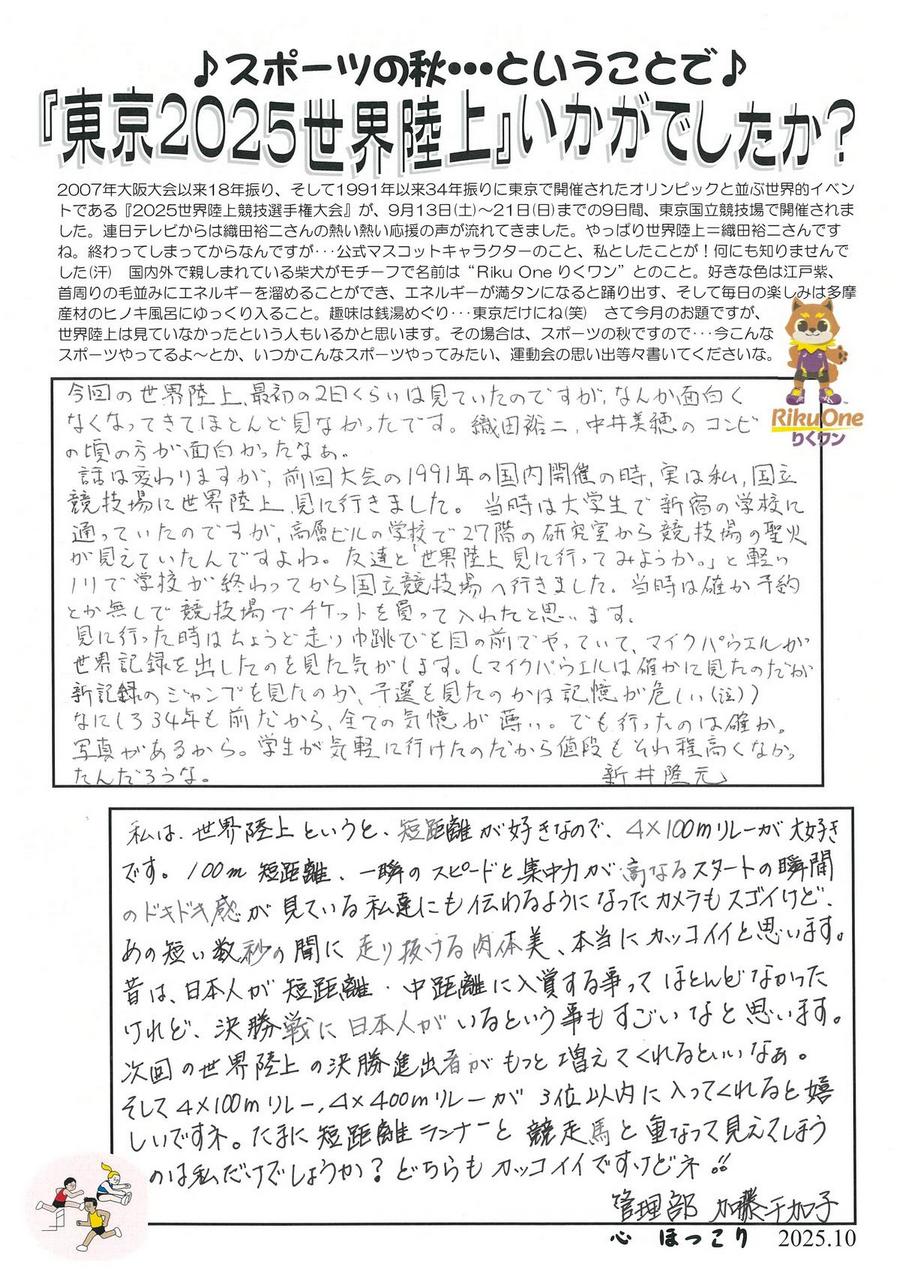 ♪スポーツの秋・・・ということで♪
『東京2025世界陸上』いかがでしたか？
2007年大阪大会以来18年振り、そして1991年以来34年振りに東京で開催されたオリンピックと並ぶ世界的イベン
トである『2025世界陸上競技選手権大会』が、9月13日(土)～21日(日)までの9日間、東京国立競技場で開催されま
した。連日テレビからは織田裕二さんの熱い熱い応援の声が流れてきました。やっぱり世界陸上＝織田裕二さんです
ね。終わってしまってからなんですが・・・公式マスコットキャラクターのこと、私としたことが！何にも知りませんで
した(汗)　国内外で親しまれている柴犬がモチーフで名前は“Riku One りくワン”とのこと。好きな色は江戸紫、
首周りの毛並みにエネルギーを溜めることができ、エネルギーが満タンになると踊り出す、そして毎日の楽しみは多摩
産材のヒノキ風呂にゆっくり入ること。趣味は銭湯めぐり・・・東京だけにね(笑)　さて今月のお題ですが、
世界陸上は見ていなかったという人もいるかと思います。その場合は、スポーツの秋ですので・・・今こんな
スポーツやってるよ～とか、いつかこんなスポーツやってみたい、運動会の思い出等々書いてくださいな。
RikuOne
りくワン
今回の世界陸上、最初の2日くらいは見ていたのですが、なんか面白く
なくなってきてほとんど見なかったです。織田裕二、中井美穂のコンビ
の頃の方が面白かったなぁ。
話は変わりますが、前回大会の1991年の国内開催の時、実は私、国立
競技場に世界陸上、見に行きました。当時は大学生で新宿の学校に
通っていたのですが、高層ビルの学校で27階の研究室から競技場の聖火
が見えていたんですよね。友達と「世界陸上見に行ってみようか。」と軽い
ノリで学校が終わってから国立競技場へ行きました。当時は確か予約
とか無しで競技場でチケットを買って入れたと思います。
見に行った時はちょうど走り巾跳びを目の前でやっていて、マイクパウエルが
世界記録を出したのを見た気がします。(マイクパウエルは確かに見たのだが
新記録のジャンプを見たのか、予選を見たのかは記憶が危しい(泣))
なにしろ34年も前だから、全ての気憶が薄い。でも行ったのは確か。
写真があるから。学生が気軽に行けたのだから値段もそれ程高くなかっ
たんだろうな。　新井隆元
私は、世界陸上というと、短距離が好きなので、4×100mリレーが大好き
です。100m 短距離、一瞬のスピードと集中力が高なるスタートの瞬間
のドキドキ感が見ている私達にも伝わるようになったカメラもスゴイけど、
あの短い数秒の間に走り抜ける肉体美、本当にカッコイイと思います。
昔は、日本人が短距離・中距離に入賞する事ってほとんどなかった
けれど、決勝戦に日本人がいるという事もすごいなと思います。
次回の世界陸上の決勝進出者がもっと増えてくれるといいなぁ。
そして4×100mリレー、4×400mリレーが3位以内に入ってくれると嬉
しいですネ。たまに短距離ランナーと競走馬と重なって見えてしまう
のは私だけでしょうか？どちらもカッコイイですけどネ!!
管理部 加藤千加子
心　ほっこり　2025.10